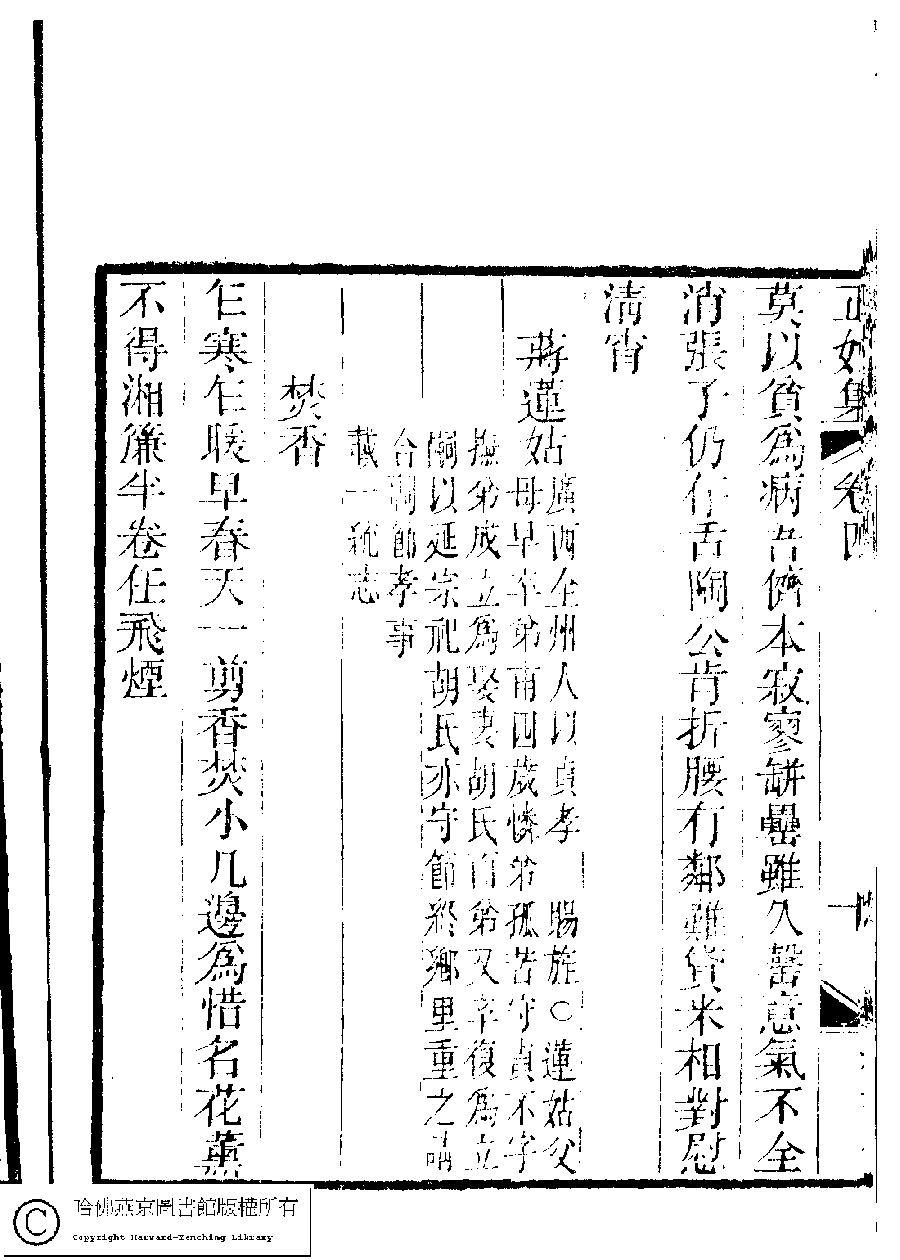 正始集 卷四
莫以貧為病吾儕本寂寥缾罍雖久罄意氣不全
消張子仍存舌陶公肯折腰有鄰難貸米相對慰
清宵
蔣蓮姑廣西全州人以貞孝 賜旌○蓮姑父
母早卒弟甫四歲憐弟孤苦守貞不字
撫弟成立為娶妻胡氏而弟又卒復為立
嗣以延宗祀胡氏亦守節終鄉里重之請
合祠節孝事
載一統志
焚香
乍寒乍暖早春天一剪香焚小几邊為惜名花薰
不得湘簾半卷任飛煙
哈佛燕京圖書館版權所有
Copyright Harvard-Yenching Library